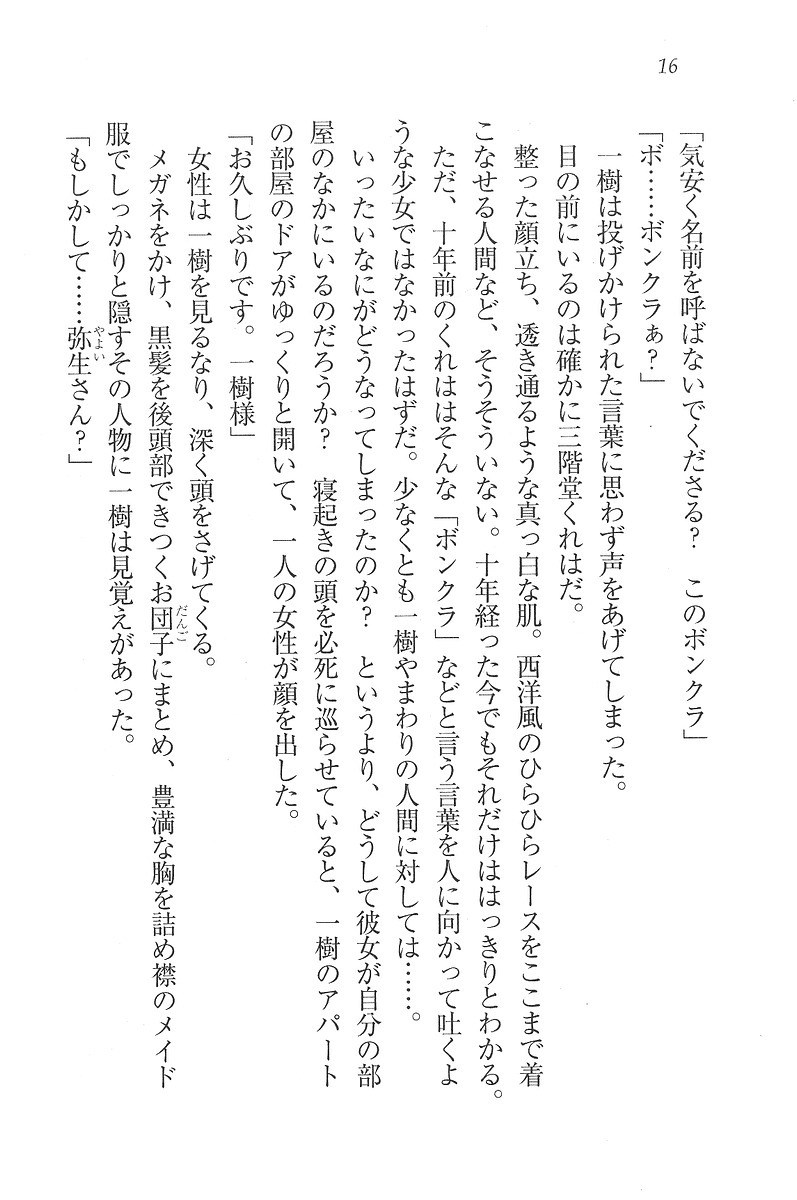 16
「気安く名前を呼ばないでくださる？　このボンクラ」
「ボ……ボンクラぁ？」
　一樹は投げかけられた言葉に思わず声をあげてしまった。
　目の前にいるのは確かに三階堂くれはだ。
　整った顔立ち、透き通るような真っ白な肌。西洋風のひらひらレースをここまで着
こなせる人間など、そうそういない。十年経った今でもそれだけははっきりとわかる。
　ただ、十年前のくれははそんな「ボンクラ」などと言う言葉を人に向かって吐くよ
うな少女ではなかったはずだ。少なくとも一樹やまわりの人間に対しては……。
　いったいなにがどうなってしまったのか？　というより、どうして彼女が自分の部
屋のなかにいるのだろうか？　寝起きの頭を必死に巡らせていると、一樹のアパート
の部屋のドアがゆっくりと開いて、一人の女性が顔を出した。
「お久しぶりです。一樹様」
　女性は一樹を見るなり、深く頭をさげてくる。
　メガネをかけ、黒髪を後頭部できつくお団子にまとめ、豊満な胸を詰め襟のメイド
だんご
服でしっかりと隠すその人物に一樹は見覚えがあった。
「もしかして……弥生さん？」
やよい